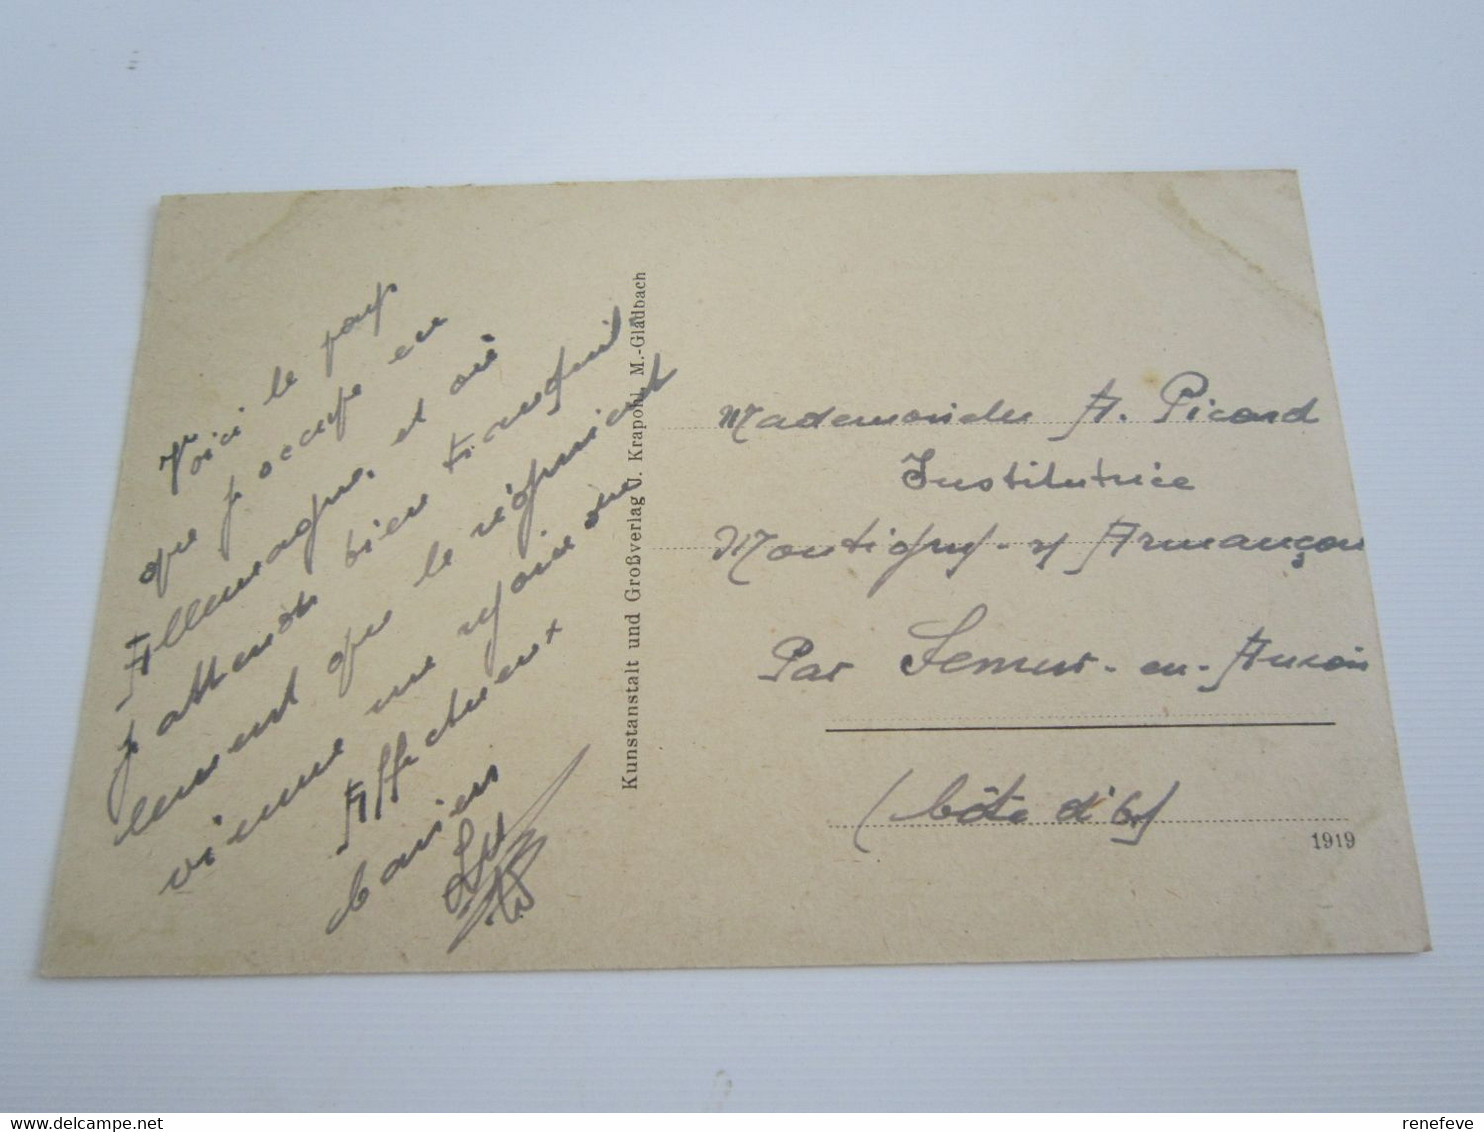 Voici le pays
que j'occupe en
Allemagne, et où
j'attends bien tranquil
lement que le régiment
vienne me rejoindre
Affectueux
baisers
Kunstanstalt und Großverlag J. Krapohl, M.-Gladbach
Mademoiselle A. Picard
Institutrice
Montigny-s/ Armançon
Par Semur-en-Auxois
(Côte d'Or)
1919
renefeve